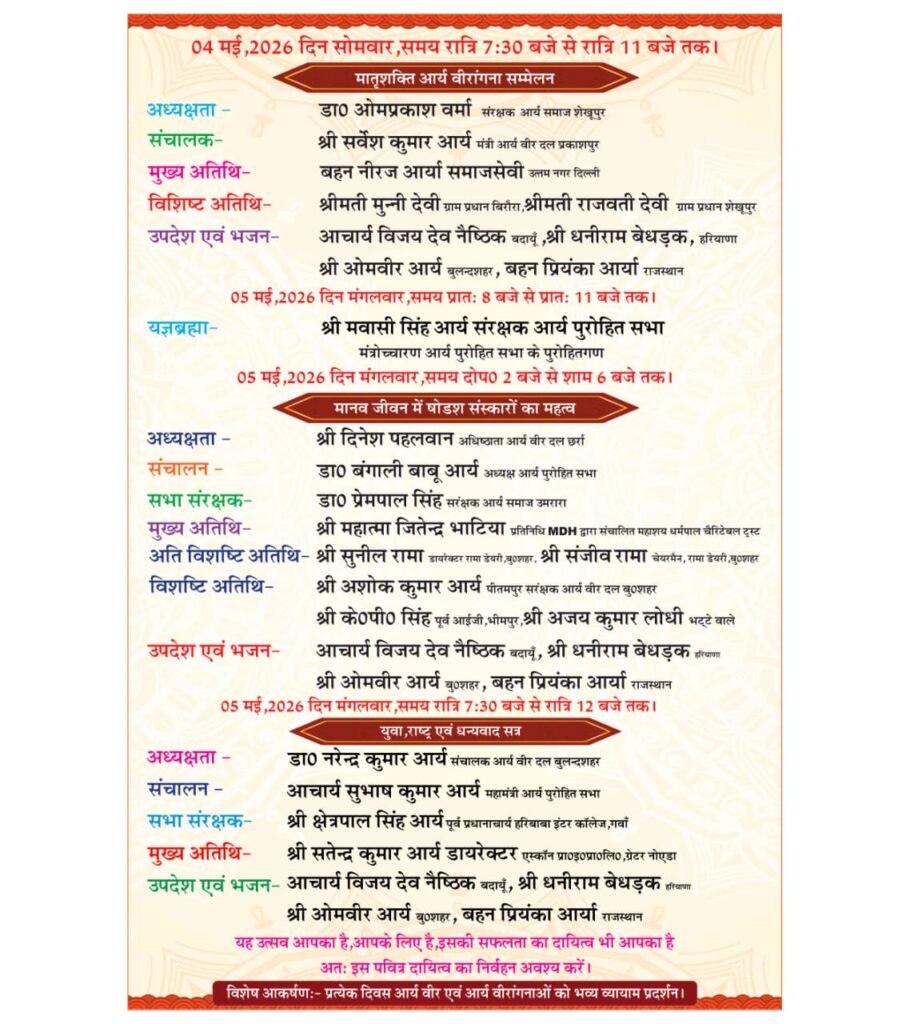 04 मई,2026 दिन सोमवार,समय रात्रि 7:30 बजे से रात्रि 11 बजे तक।
मातृशक्ति आर्य वीरांगना सम्मेलन
अध्यक्षता - डा0 ओमप्रकाश वर्मा संरक्षक आर्य समाज शेखूपुर
संचालक- श्री सर्वेश कुमार आर्य मंत्री आर्य वीर दल प्रकाशपुर
मुख्य अतिथि- बहन नीरज आर्या समाजसेवी उत्तम नगर दिल्ली
विशिष्ट अतिथि- श्रीमती मुन्नी देवी ग्राम प्रधान बिरौरा,श्रीमती राजवती देवी ग्राम प्रधान शेखूपुर
उपदेश एवं भजन- आचार्य विजय देव नैष्ठिक बदायूँ ,श्री धनीराम बेधड़क, हरियाणा
श्री ओमवीर आर्य बुलन्दशहर, बहन प्रियंका आर्या राजस्थान
05 मई,2026 दिन मंगलवार,समय प्रातः 8 बजे से प्रातः 11 बजे तक।
यज्ञब्रह्मा- श्री मवासी सिंह आर्य संरक्षक आर्य पुरोहित सभा
मंत्रोच्चारण आर्य पुरोहित सभा के पुरोहितगण
05 मई,2026 दिन मंगलवार,समय दोप0 2 बजे से शाम 6 बजे तक।
मानव जीवन में षोडश संस्कारों का महत्व
अध्यक्षता - श्री दिनेश पहलवान अधिष्ठाता आर्य वीर दल छर्रा
संचालन - डा0 बंगाली बाबू आर्य अध्यक्ष आर्य पुरोहित सभा
सभा संरक्षक- डा0 प्रेमपाल सिंह सरंक्षक आर्य समाज उमरारा
मुख्य अतिथि- श्री महात्मा जितेन्द्र भाटिया प्रतिनिधि MDH द्वारा संचालित महाशय धर्मपाल चैरिटेबल ट्रस्ट
अति विशष्टि अतिथि- श्री सुनील रामा डायरेक्टर रामा डेयरी,बु0शहर, श्री संजीव रामा चेयरमैन, रामा डेयरी,बु0शहर
विशष्टि अतिथि- श्री अशोक कुमार आर्य पीतमपुर सरंक्षक आर्य वीर दल बु0शहर
श्री के0पी0 सिंह पूर्व आईजी,भीमपुर,श्री अजय कुमार लोधी भट्टे वाले
उपदेश एवं भजन- आचार्य विजय देव नैष्ठिक बदायूँ, श्री धनीराम बेधड़क हरियाणा
श्री ओमवीर आर्य बु0शहर, बहन प्रियंका आर्या राजस्थान
05 मई,2026 दिन मंगलवार,समय रात्रि 7:30 बजे से रात्रि 12 बजे तक।
युवा,राष्ट्र एवं धन्यवाद सत्र
अध्यक्षता - डा0 नरेन्द्र कुमार आर्य संचालक आर्य वीर दल बुलन्दशहर
संचालन - आचार्य सुभाष कुमार आर्य महामंत्री आर्य पुरोहित सभा
सभा संरक्षक- श्री क्षेत्रपाल सिंह आर्य पूर्व प्रधानाचार्य हरिबाबा इंटर कॉलेज,गवाँ
मुख्य अतिथि- श्री सतेन्द्र कुमार आर्य डायरेक्टर एस्कॉन प्रा0इ0प्रा0लि0,ग्रेटर नोएडा
उपदेश एवं भजन- आचार्य विजय देव नैष्ठिक बदायूँ, श्री धनीराम बेधड़क हरियाणा
श्री ओमवीर आर्य बु0शहर, बहन प्रियंका आर्या राजस्थान
यह उत्सव आपका है,आपके लिए है,इसकी सफलता का दायित्व भी आपका है
अतः इस पवित्र दायित्व का निर्वहन अवश्य करें।
विशेष आकर्षण:- प्रत्येक दिवस आर्य वीर एवं आर्य वीरांगनाओं को भव्य व्यायाम प्रदर्शन।